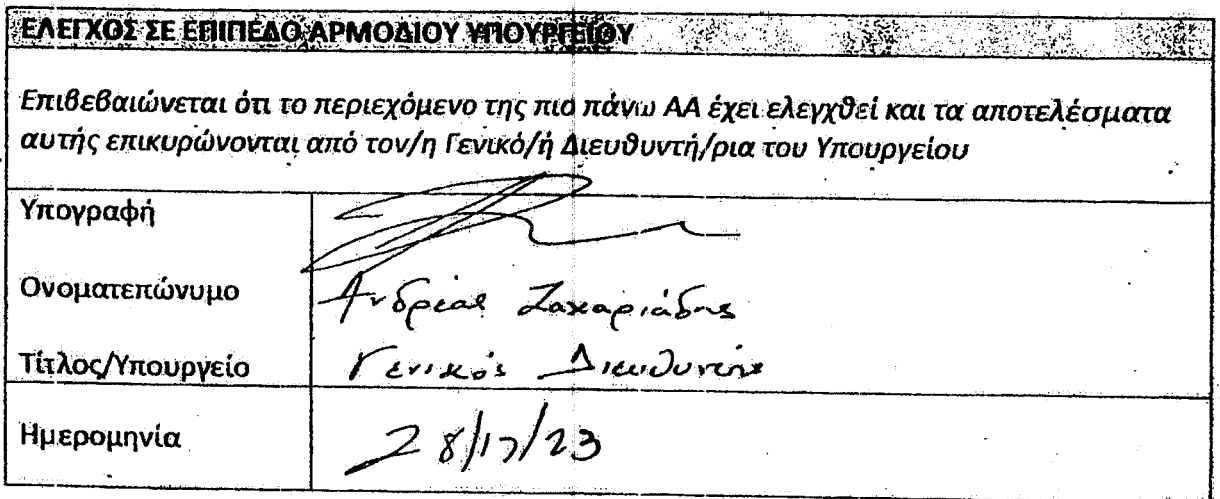 ΕΛΕΓΧΟΣ ΣΕ ΕΠΙΠΕΔΟ ΑΡΜΟΔΙΟΥ ΥΠΟΥΡΓΕΙΟΥ
Επιβεβαιώνεται ότι το περιεχόμενο της πιο πάνω ΑΑ έχει ελεγχθεί και τα αποτελέσματα
αυτής επικυρώνονται από τον/η Γενικό/ή Διευθυντή/ρια του Υπουργείου
Υπογραφή
Ονοματεπώνυμο Ανδρέας Ζαχαριάδης
Τίτλος/Υπουργείο Γενικός Διευθυντής
Ημερομηνία